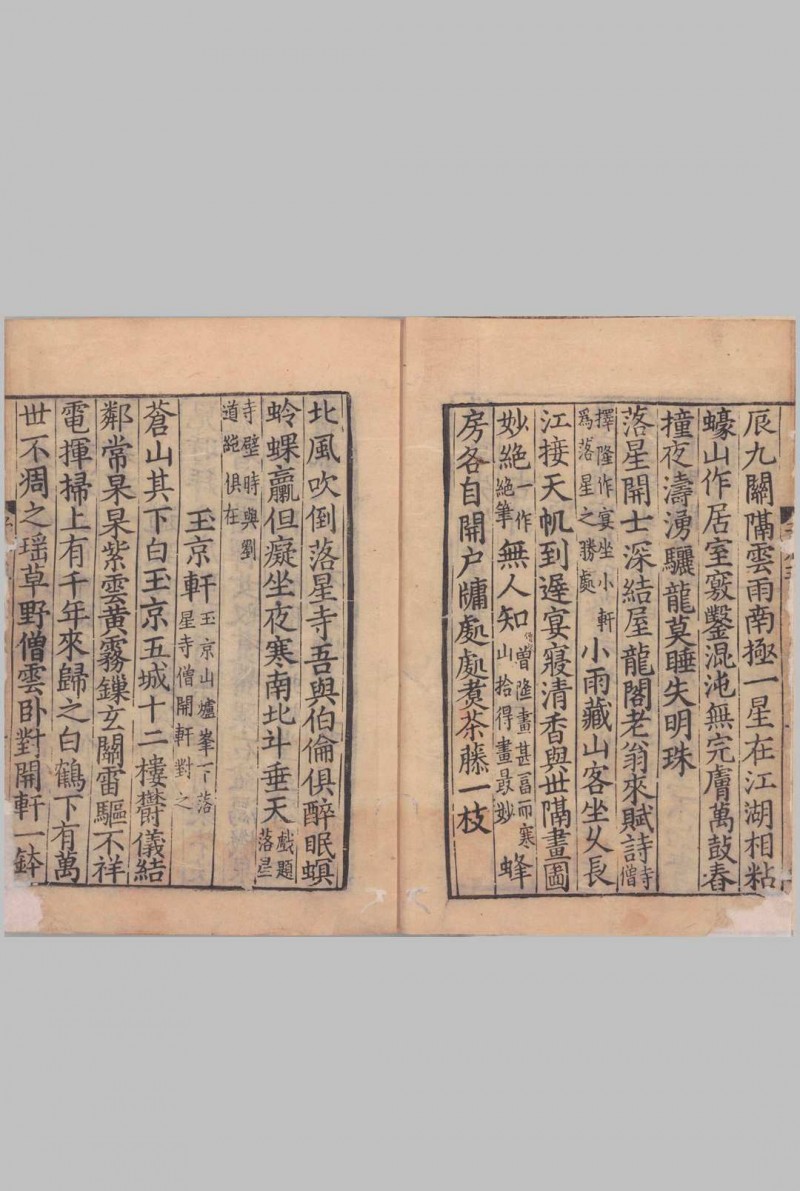 辰九關隔雲雨南極一星在江湖相粘
蠔山作居室竅鑿混沌無完膚萬鼓舂
撞夜濤湧驪龍莫睡失明珠
落星開士深結屋龍閣老翁來賦詩寺僧
擇隆作宴坐小軒爲落星之勝處小雨藏山客坐久長
江接天帆到遲宴寢清香與世隔畫圖
妙絶一作絶筆無人知僧隆畫甚富而寒山拾得畫最妙蜂
房各自開户牖處處煑茶藤一枝
北風吹倒落星寺吾與伯倫俱醉眠螟
蛉蜾蠃但癡坐夜寒南北斗垂天戲題落星
寺壁時與劉道純俱在
玉京軒玉京山爐峯下落星寺僧開軒對之
蒼山其下白玉京五城十二樓鬱儀結
鄰常杲杲紫雲黄霧鏁玄關雷驅不祥
電揮掃上有千年來歸之白鶴下有萬
世不凋之瑶草野僧雲卧對開軒一鉢